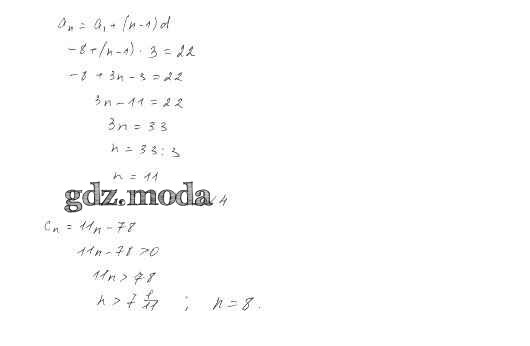 aₙ = a₁ + (n-1)d
-8+(n-1) · 3 = 22
-8 + 3n - 3 = 22
3n - 11 = 22
3n = 33
n = 33 : 3
n = 11
gdz.moda
4
cₙ = 11n - 78
11n - 78 > 0
11n > 78
n > 7 1/11 ; n = 8.